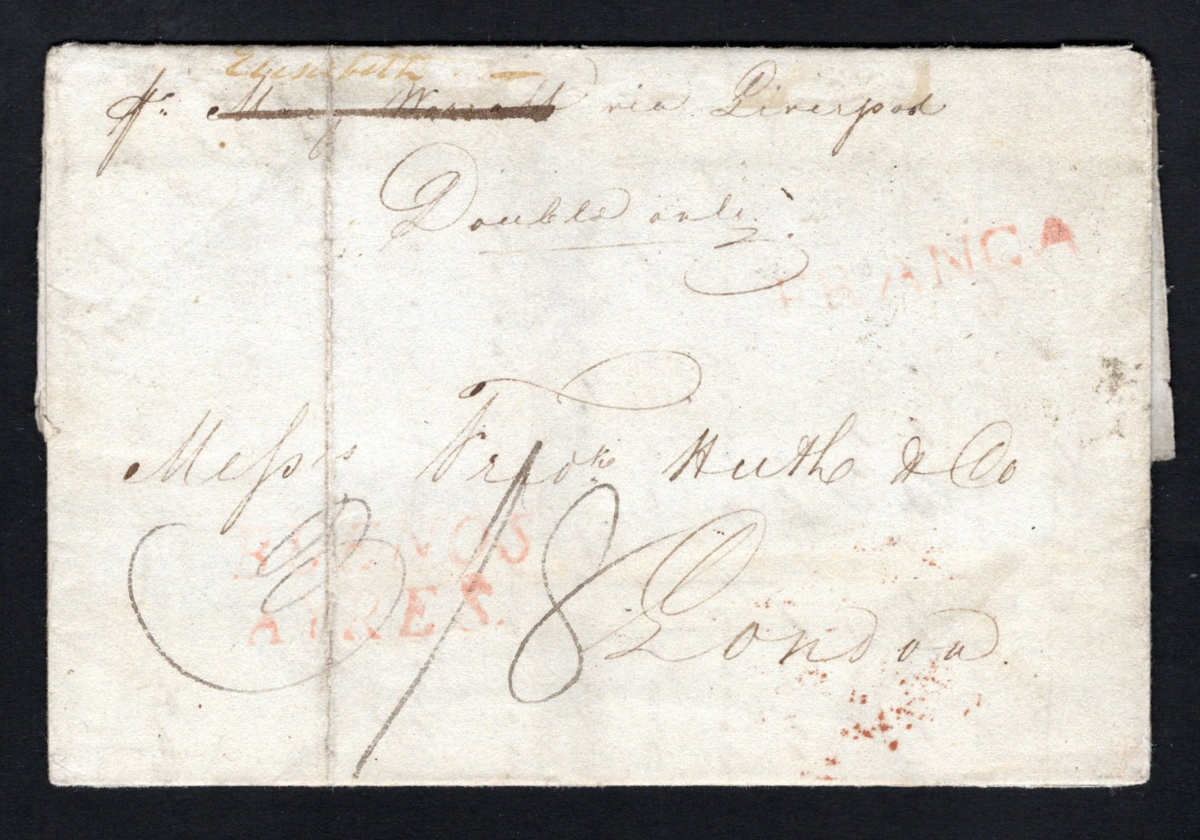 Elizabeth
pr. Mary Worrall via Liverpool
Double only.
FRANCA
Messrs Fredk. Huth & Co
BUENOS
AYRES.
3/8
London.